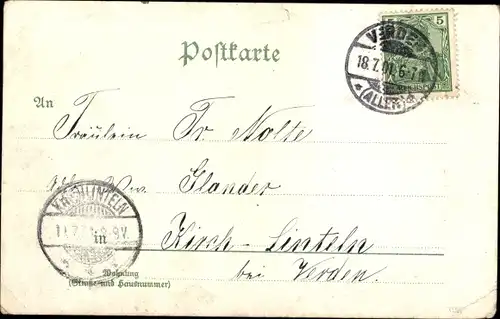 Postkarte
5
VERDEN
18.7.01.6-7N
*(ALLER)*
An
Fräulein Fr. Nolte
Glander
KIRCHLINTELN
in
Kirch-Linteln
bei Verden.
Wohnung
(Straße und Hausnummer)